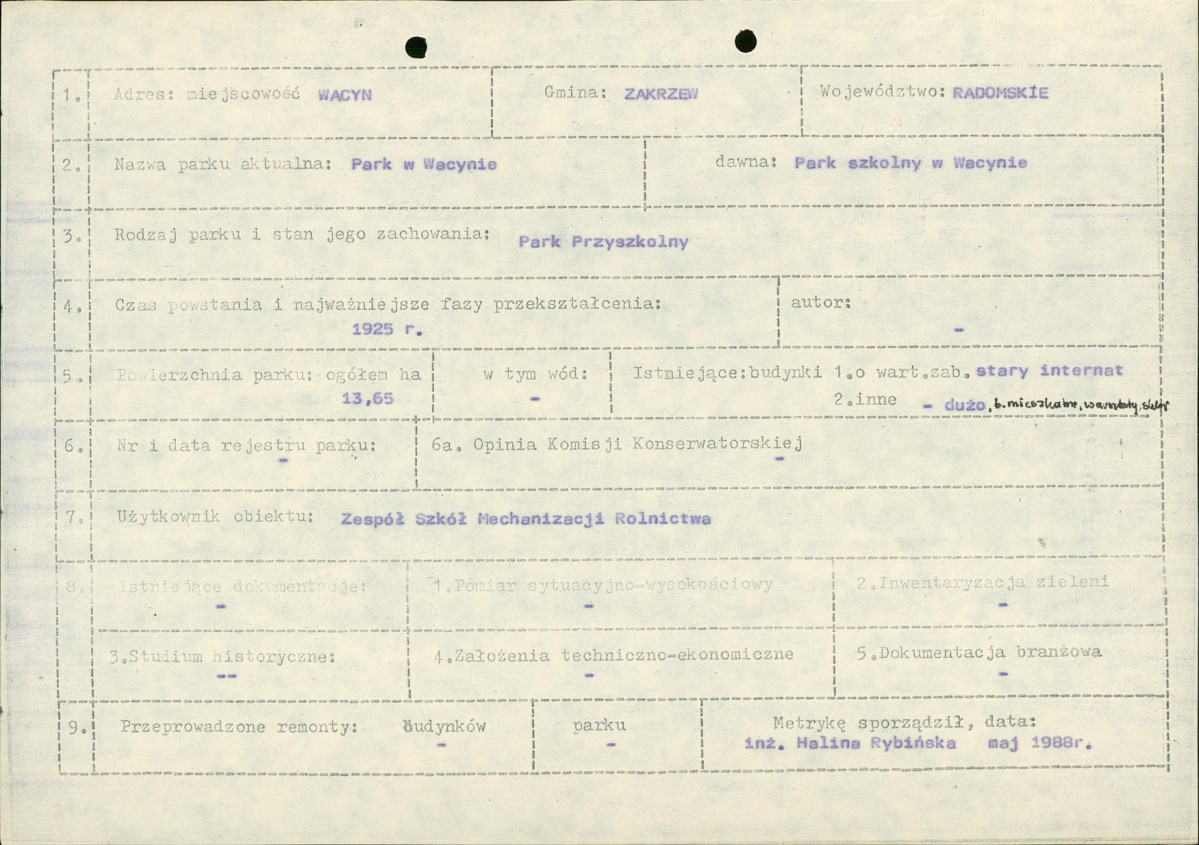 1. Adres: miejscowość WACYN Gmina: ZAKRZEW Województwo: RADOMSKIE
2. Nazwa parku aktualna: Park w Wacynie dawna: Park szkolny w Wacynie
3. Rodzaj parku i stan jego zachowania: Park Przyszkolny
4. Czas powstania i najważniejsze fazy przekształcenia: autor:
1925 r. -
5. Powierzchnia parku: ogółem ha w tym wód: Istniejące: budynki 1.o wart.zab. stary internat
13,65 - 2.inne - dużo, b. mieszkalne, warsztaty,
6. Nr i data rejestru parku: 6a. Opinia Komisji Konserwatorskiej
- -
7. Użytkownik obiektu: Zespół Szkół Mechanizacji Rolnictwa
8. Istniejące dokumentacje: 1.Pomiar sytuacyjno-wysokościowy 2.Inwentaryzacja zieleni
- - -
3.Studium historyczne: 4.Założenia techniczno-ekonomiczne 5.Dokumentacja branżowa
-- - -
9. Przeprowadzone remonty: Budynków parku Metrykę sporządził, data:
- - inż. Halina Rybińska maj 1988r.